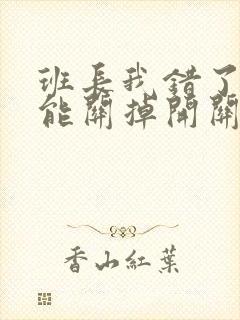 班长我错了
能關掉開關
香山紅葉